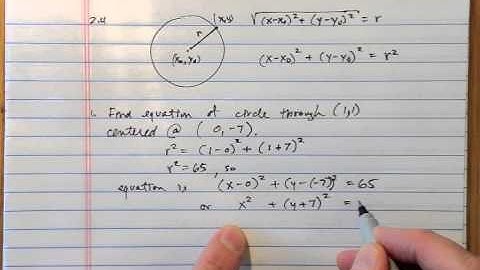 2.4
(x,y)
r
(x₀, y₀)
√((x-x₀)² + (y-y₀)²) = r
(x-x₀)² + (y-y₀)² = r²
1. Find equation of circle through (1,1)
centered @ (0,-7).
r² = (1-0)² + (1+7)²
r² = 65, so
equation is (x-0)² + (y-(-7))² = 65
or x² + (y+7)² =